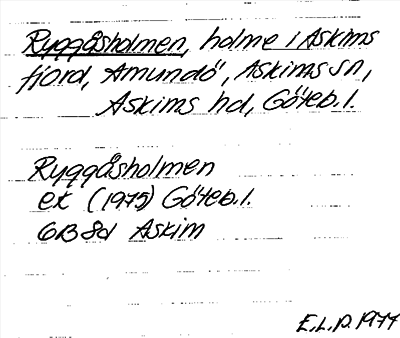 Ryggåsholmen, holme i Askims
fjord, Amundö, Askims sn,
Askims hd, Göteb. l.
Ryggåsholmen
ek (1975) Göteb. l.
6B 8d Askim
E.L.P. 1977